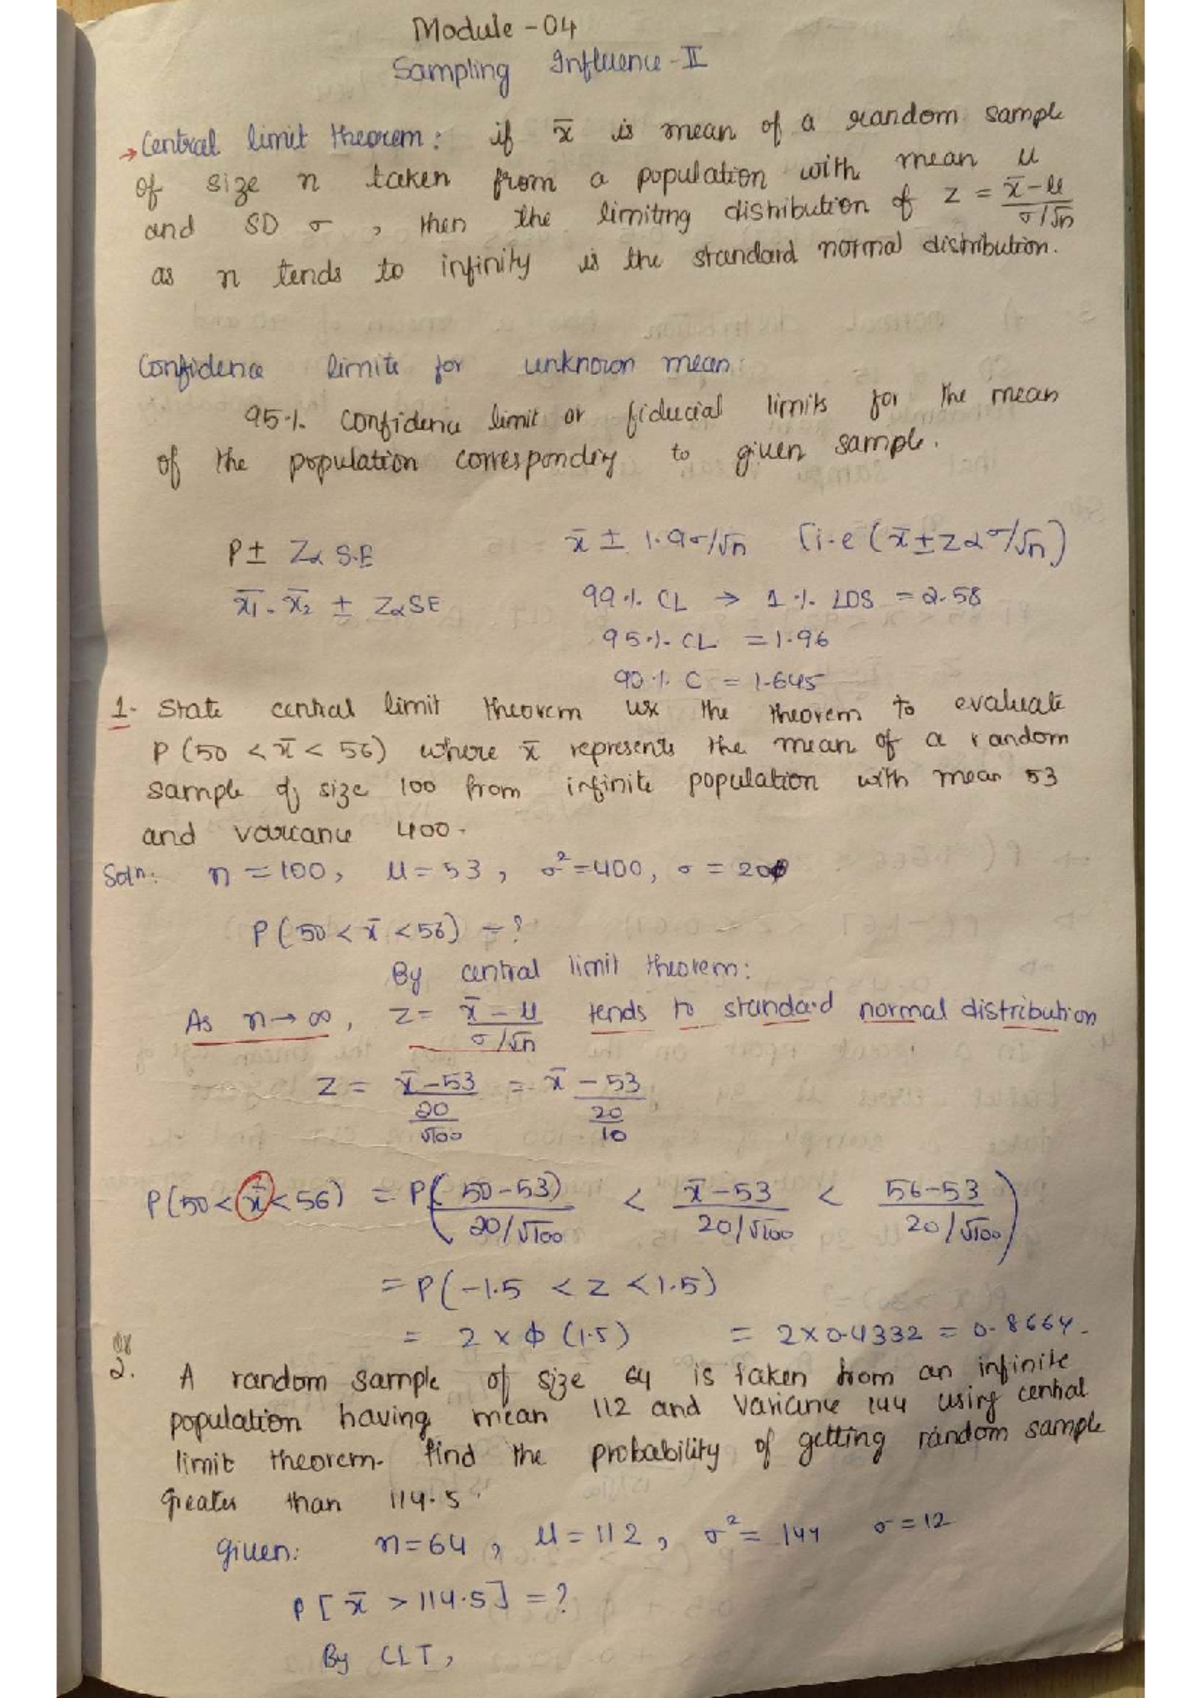 Module - 04
Sampling Influence - II
→ Central limit theorem: if x̄ is mean of a random sample
of size n taken from a population with mean μ
and SD σ, then the limiting distribution of z = (x̄ - μ)/(σ/√n)
as n tends to infinity is the standard normal distribution.
Confidence limits for unknown mean:
95% Confidence limit or fiducial limits for the mean
of the population corresponding to given sample.
P ± Zα S.E
x̄ ± 1.9σ/√n [i.e (x̄ ± zασ/√n)
x̄₁ - x̄₂ ± Zα SE
99% CL → 1% LOS = 2.58
95% CL = 1.96
90% C = 1.645
1. State central limit theorem use the theorem to evaluate
P(50 < x̄ < 56) where x̄ represents the mean of a random
sample of size 100 from infinite population with mean 53
and variance 400.
Soln: n = 100, μ = 53, σ² = 400, σ = 20
P(50 < x̄ < 56) = ?
By central limit theorem:
As n → ∞, z = (x̄ - μ)/(σ/√n) tends to standard normal distribution
z = (x̄ - 53)/(20/√100) = (x̄ - 53)/(20/10)
P(50 < x̄ < 56) = P((50-53)/(20/√100) < (x̄-53)/(20/√100) < (56-53)/(20/√100))
= P(-1.5 < z < 1.5)
= 2 × φ(1.5) = 2×0.4332 = 0.8664.
2. A random sample of size 64 is taken from an infinite
population having mean 112 and Variance 144 using central
limit theorem. find the probability of getting random sample
greater than 114.5.
given: n=64, μ=112, σ²=144 σ=12
P[x̄ > 114.5] = ?
By CLT,